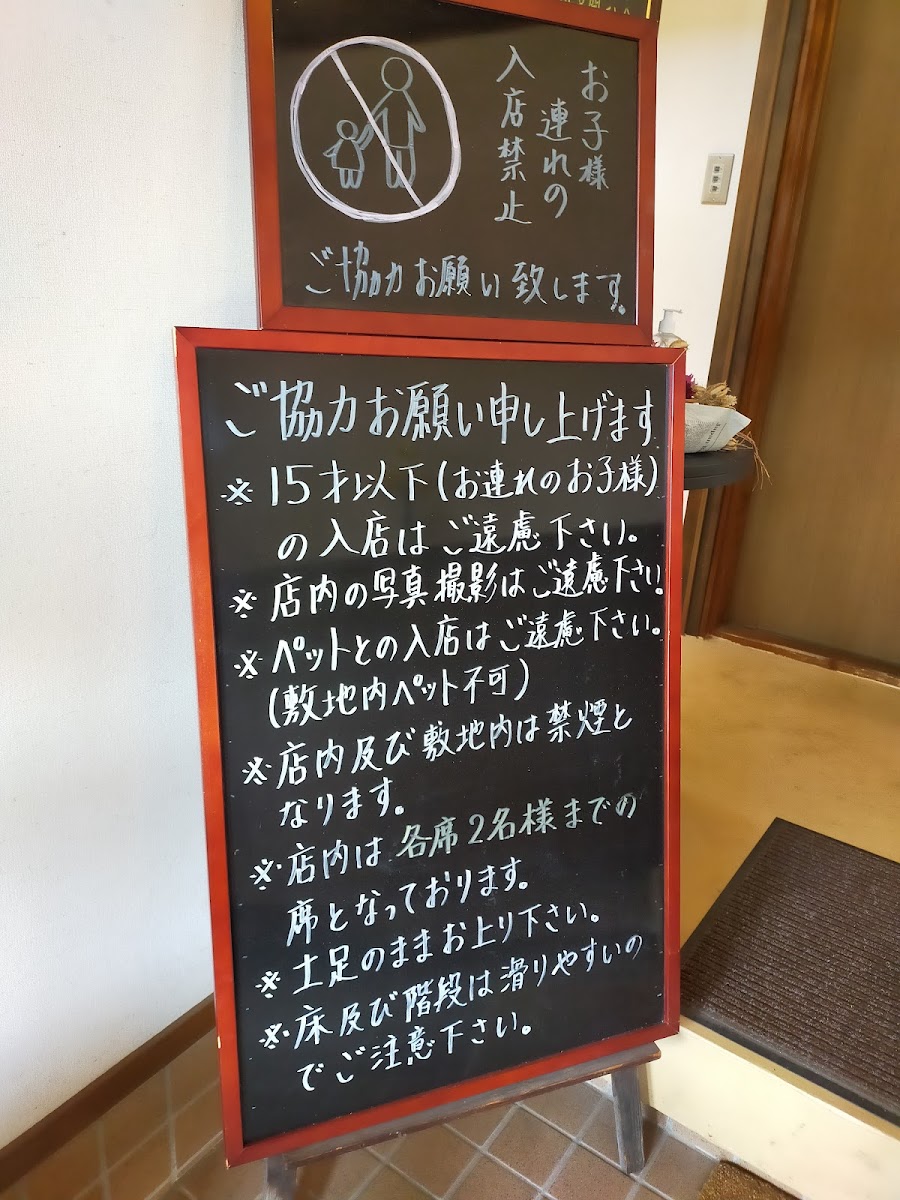 お子様
連れの
入店禁止
ご協力お願い致します。
ご協力お願い申し上げます
※15才以下(お連れのお子様)
の入店はご遠慮下さい。
※店内の写真撮影はご遠慮下さい。
※ペットとの入店はご遠慮下さい。
(敷地内ペット不可)
※店内及び敷地内は禁煙と
なります。
※店内は各席2名様までの
席となっております。
※土足のままお上り下さい。
※床及び階段は滑りやすいの
でご注意下さい。